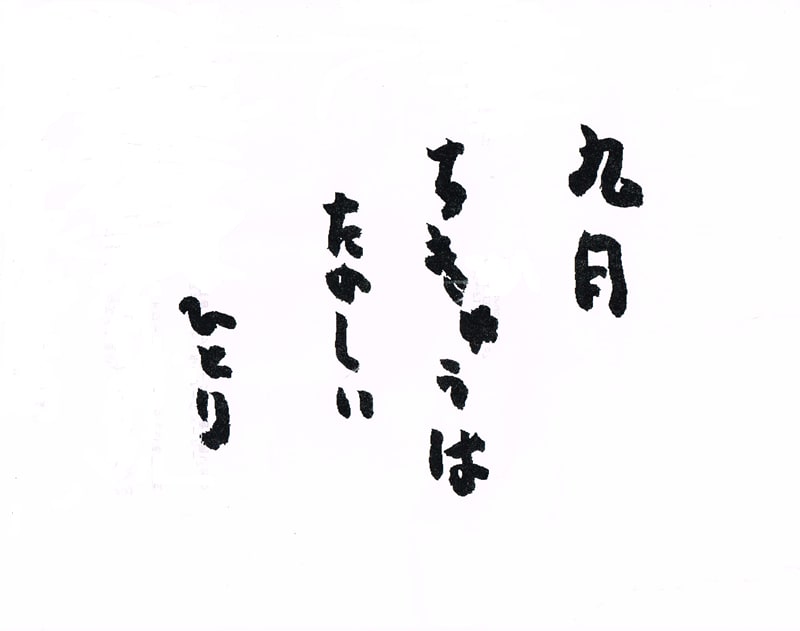 九月
ちきゅうは
たのしい
ひとり